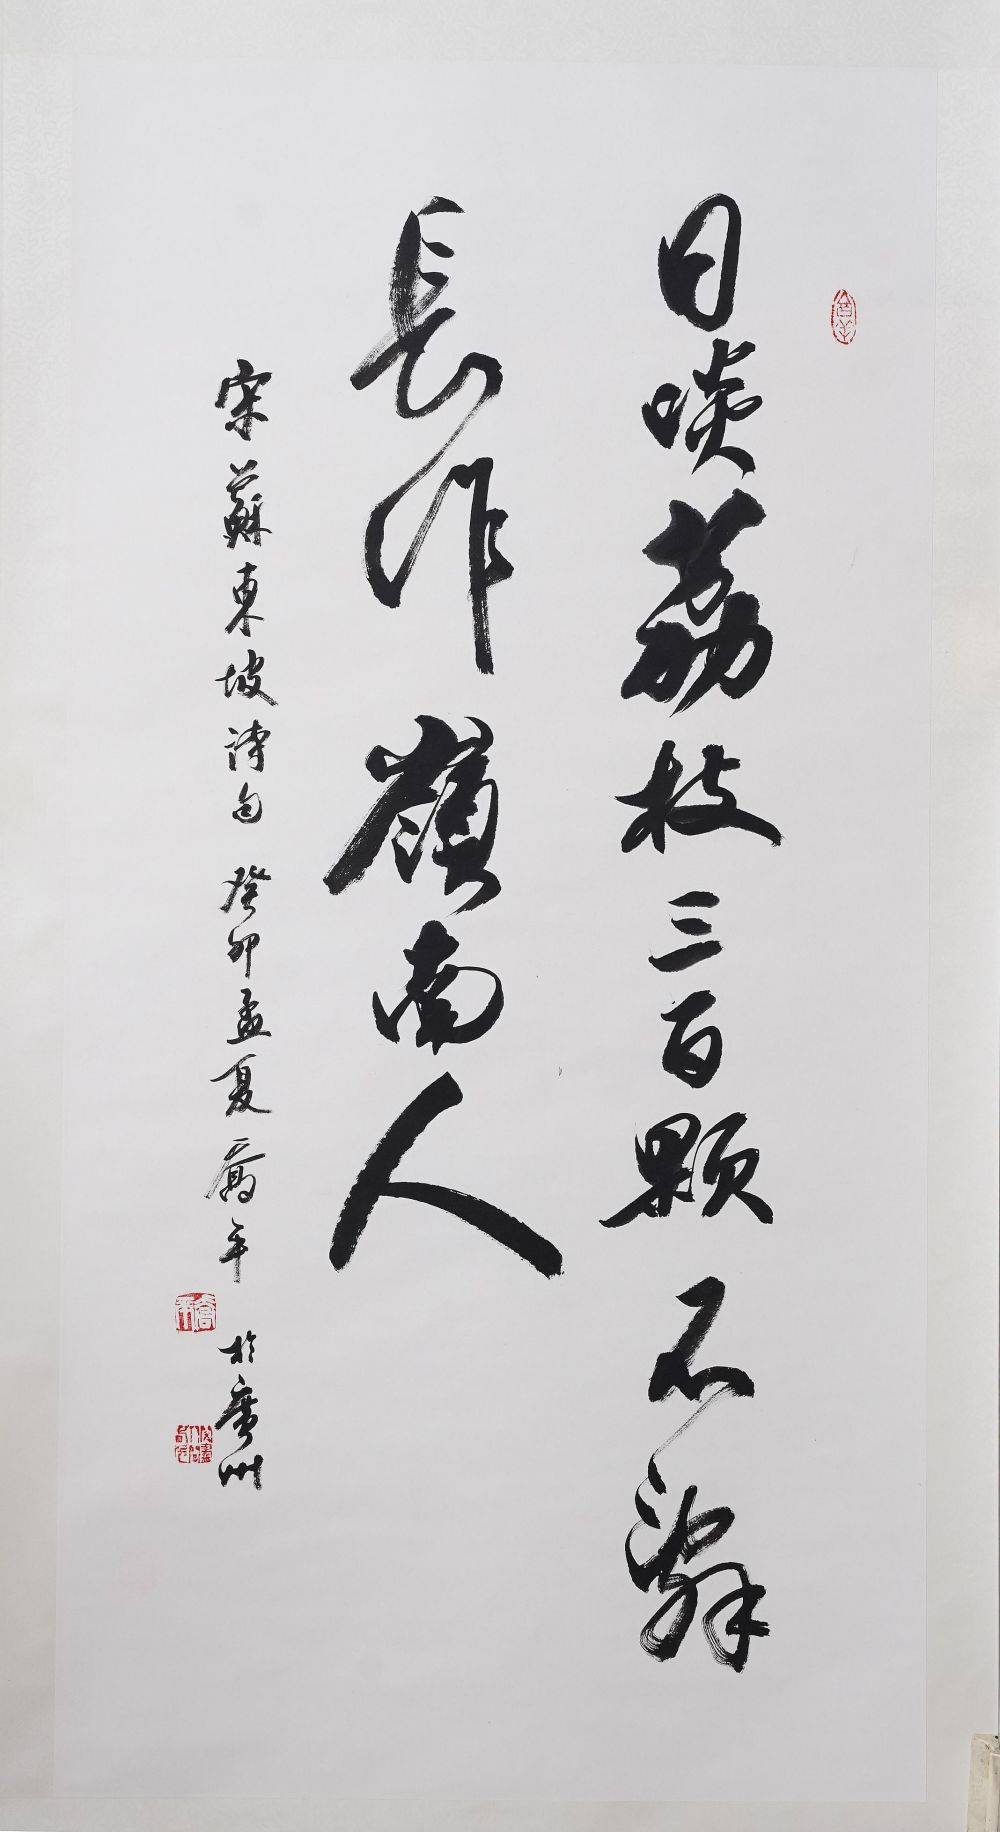 日啖荔枝三百顆不辭
長作嶺南人
宋蘇東坡詩句 癸卯孟夏喬平
於廣州
喬平